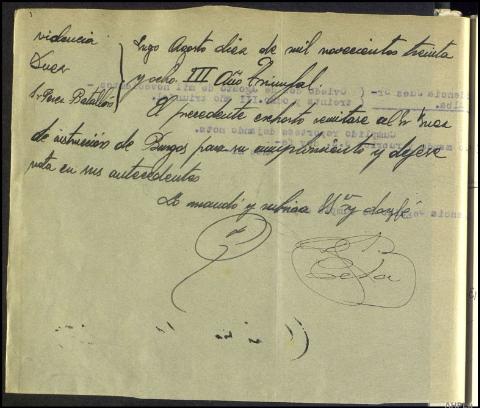 videncia
Juez
Sr Perez Batallón
Lugo Agosto diez de mil novecientos treinta
y ocho III Año Triunfal.
El precedente exhorto remitase al Sr Juez
de instrucción de Burgos para su cumplimiento y dejese
nota en sus antecedentes
Lo mandó y rubrica SSª y doy fé